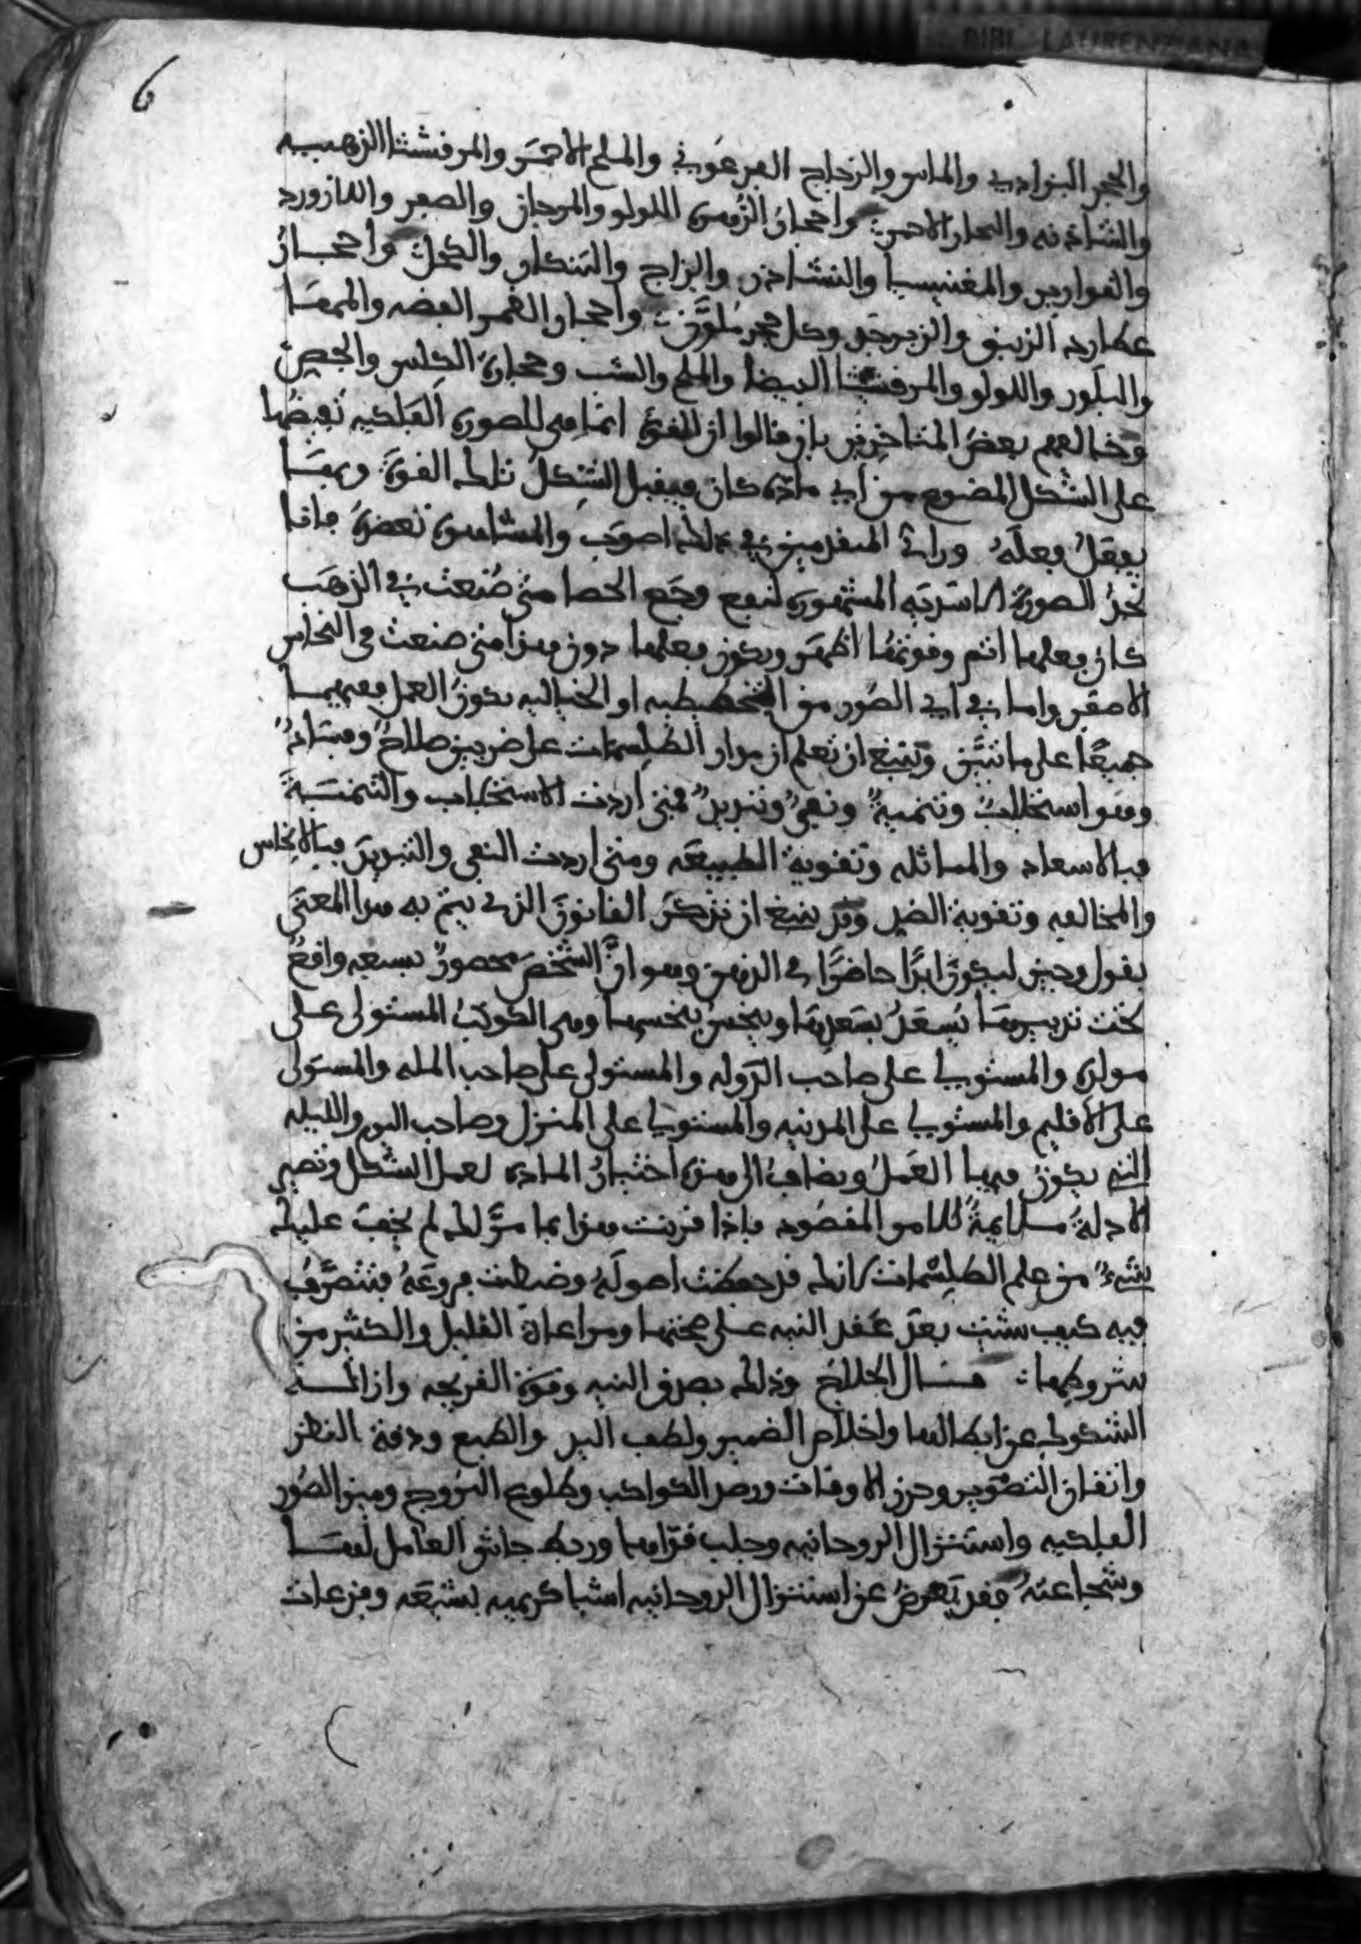 BIBL. LAURENZIANA
6
والحجر البزادي والماس والزجاج الفرعوني والملح الاحمر والمرقشثا الذهبيه
والشاذنه والبجاد الاحمر واحجار الزهرة اللولو والمرجان والصفر واللازورد
والقوارير والمغنيسيا والنشاذر والزاج والتنكار والكحل واحجار
عطارد الزيبق والزبرجد وكل حجر ملون واحجار القمر الفضه والمها
والبلور واللولو والمرقشيثا البيضا والملح والشب وحجارة الكلس والجص
وخالفهم بعض المتاخرين بان قالوا ان القوة انما هي للصورة الفلكيه تفيضها
على الشكل المصنوع من اي مادة كان فيقبل الشكل تلك القوة وبها
يفعل فعله وراي المتقدمين في ذلك اصوب والمشاهدة تعضده فانا
نجد الصورة الاسديه المشهورة لنفع وجع الحصا متى صنعت في الذهب
كان فعلها اتم وقوتها اظهر ويكون فعلها دون هذا متى صنعت في النحاس
الاصفر واما في اي الصور من التخطيطيه او الخياليه يكون العمل ففيهما
جميعا على ما تبين وينبغي ان تعلم ان مدار الطلسمات على ضربين صلاح وفساد
وهو استجلاب وتنمية ونفي وتبديد فمتى اردت الاستجلاب والتنمية
فبالاسعاد والمماثله وتقوية الطبيعه ومتى اردت النفي والتبديد فبالانحاس
والمخالفه وتقوية الضد وقد ينبغي ان نذكر القانون الذي يتم به هذا المعنى
بقول وجيز ليكون ابدا حاضرا في الذهن وهو ان الشخص محصور بسبعه واقع
تحت تدبيرها يسعد بسعدها وينحس بنحسها وهي الكوكب المستولى على
مولده والمستولي على صاحب الدوله والمستولى على صاحب المله والمستولى
على الاقليم والمستولي على المدينه والمستولي على المنزل وصاحب اليوم والليله
التي يكون فيها العمل ويضاف الى هذه اختيار الماده لعمل الشكل وتصير
الادلة ملايمة للامر المقصود فاذا قرنت هذا بما مر لك لم يخف عليك
شيء من علم الطلسمات لانك قد حفظت اصوله وضبطت فروعه فتتصرف
فيه كيف شئت بعد عقد النيه على صحتها ومراعاة القليل والكثير من
شروطها قال الحلاج وذلك بصدق النيه وقوة القريحه وازالة
الشكوك عن ابطالها واخلاص الضمير ولطف اليد والطبع ودقة النظر
واتفاق التصوير وحرز الاوقات ورصد الكواكب وطلوع البروج وميز الصور
الفلكيه واستنزال الروحانيه وجلب قواها وربط جاش العامل لها
وشجاعته فقد يعرض عن استنزال الروحانيه اشيا كريهه بشعه ومفزعات